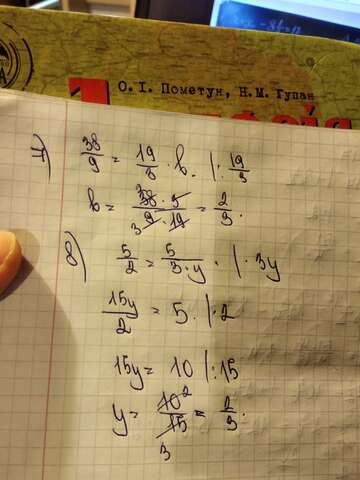 О. І. Пометун, Н. М. Гупан
7) 38/9 = 19/3 · b. | : 19/3
b = 38 · 3 / 9 · 19 = 2/3.
8) 5/2 = 5/3 · y . | · 3y
15y/2 = 5. | · 2
15y = 10 | : 15
y = 10/15 = 2/3.